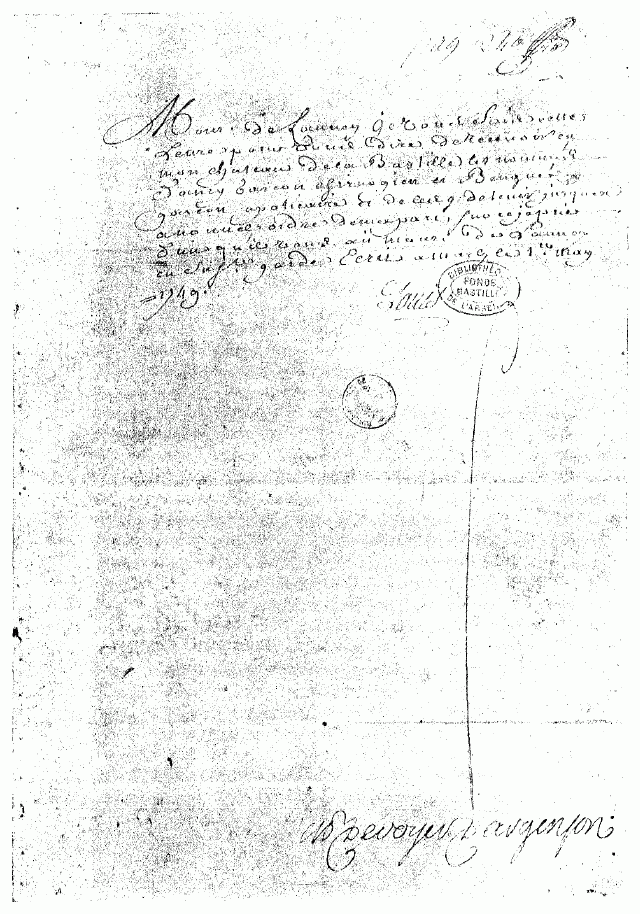 Mons. de Launey je vous fais cette
Lettre pour vous dire de recevoir en
mon chateau de la Bastille les nommés
garçon chirurgien et Bouquet
garçon apoticaire et de les y detenir jusques
a nouvel ordre de ma part. Sur ce je prie
Dieu qu'il vous ait Mons. de Launey
en sa ste garde. Ecrit a Marly le 1er May
1749.
Louis
BIBLIOTHE
FONDS
BASTILLE
DE L'ARSE
M. P. de voyer d'argenson